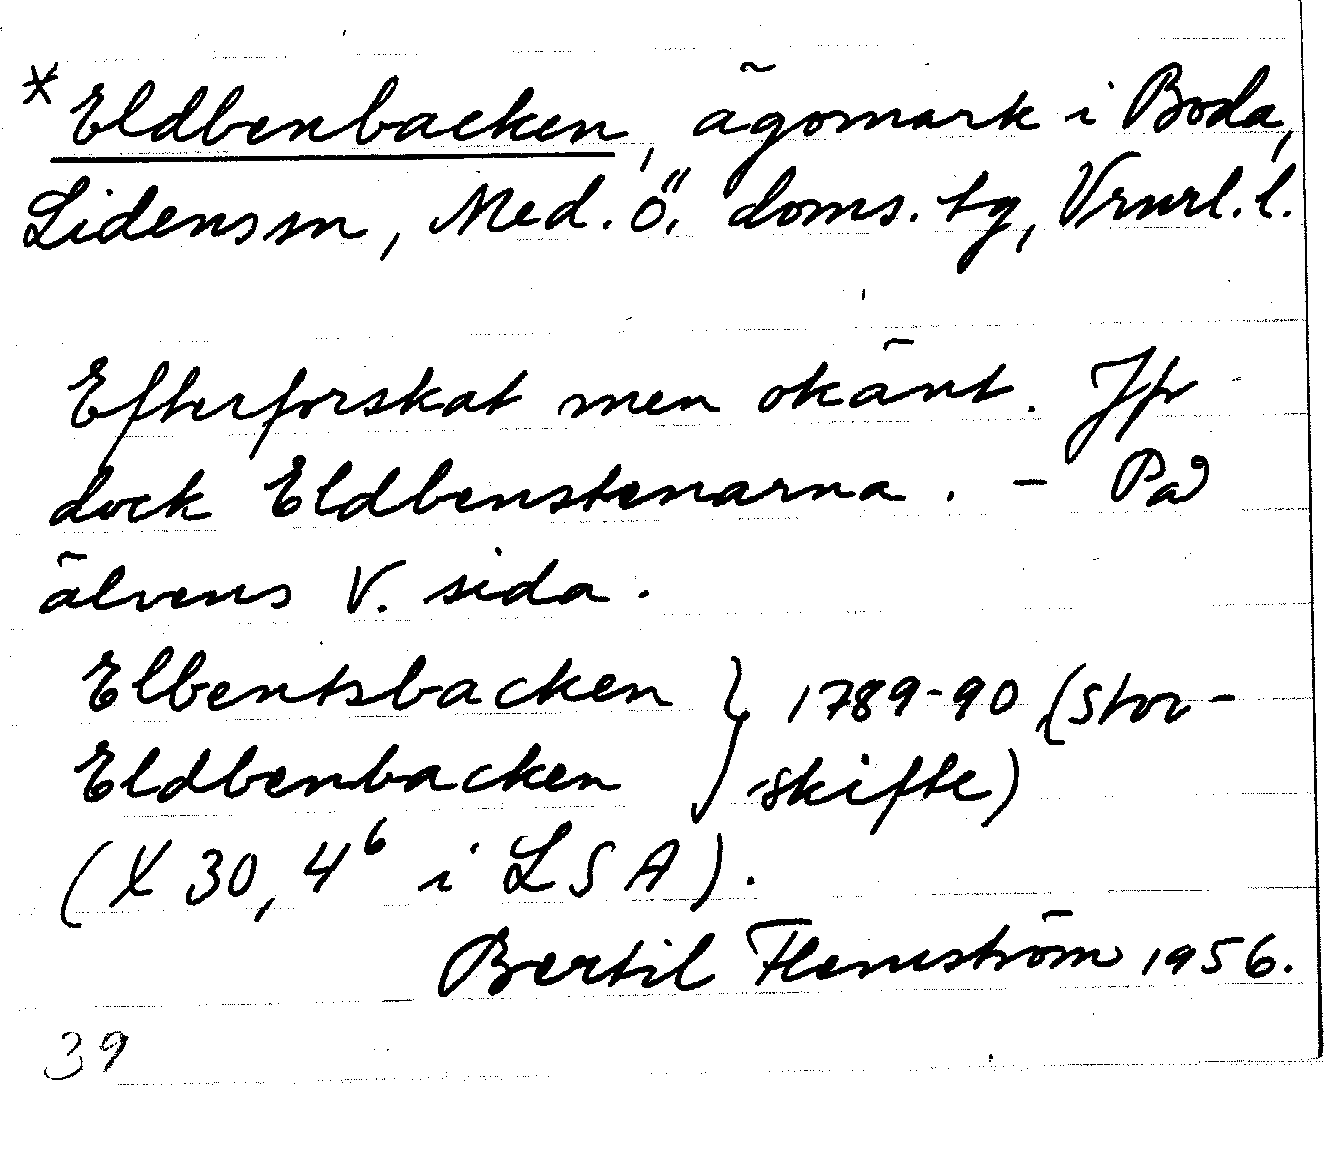 * Eldbenbacken, ägomark i Boda,
Lidens sn, Med. Ö. doms. tg, Vrnrl. l.
Efterforskat men okänt. Jfr
dock Eldbenstenarna. - På
älvens V. sida.
Elbentsbacken } 1789-90 (Stor-
Eldbenbacken } skifte)
(X 30, 4⁶ i LSA).
Bertil Flemström 1956.
39